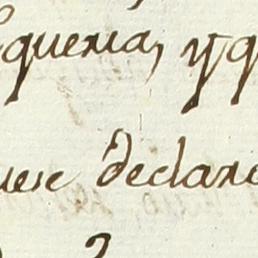 queria, y q
uese declara